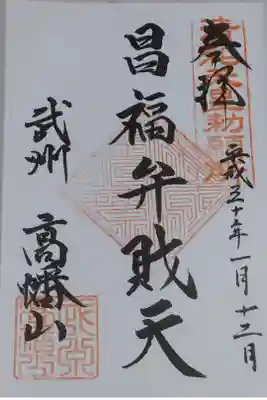 奉拝
平成三十年一月十二日
昌福弁財天
武州
高幡山